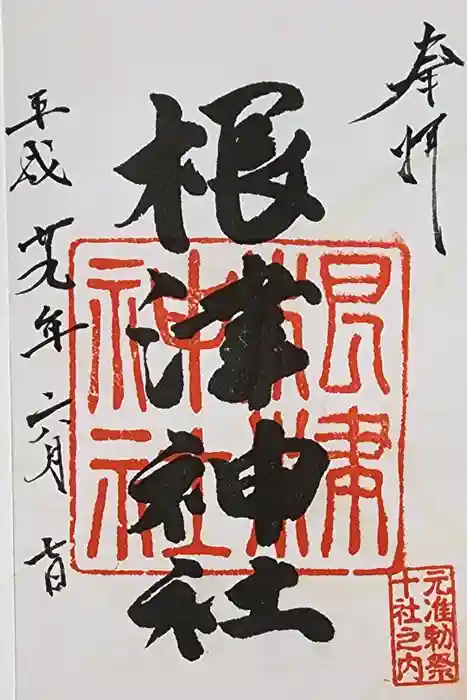 奉拝
根津神社
根津
神社
元准勅祭
十社之内
平成廿九年六月七日